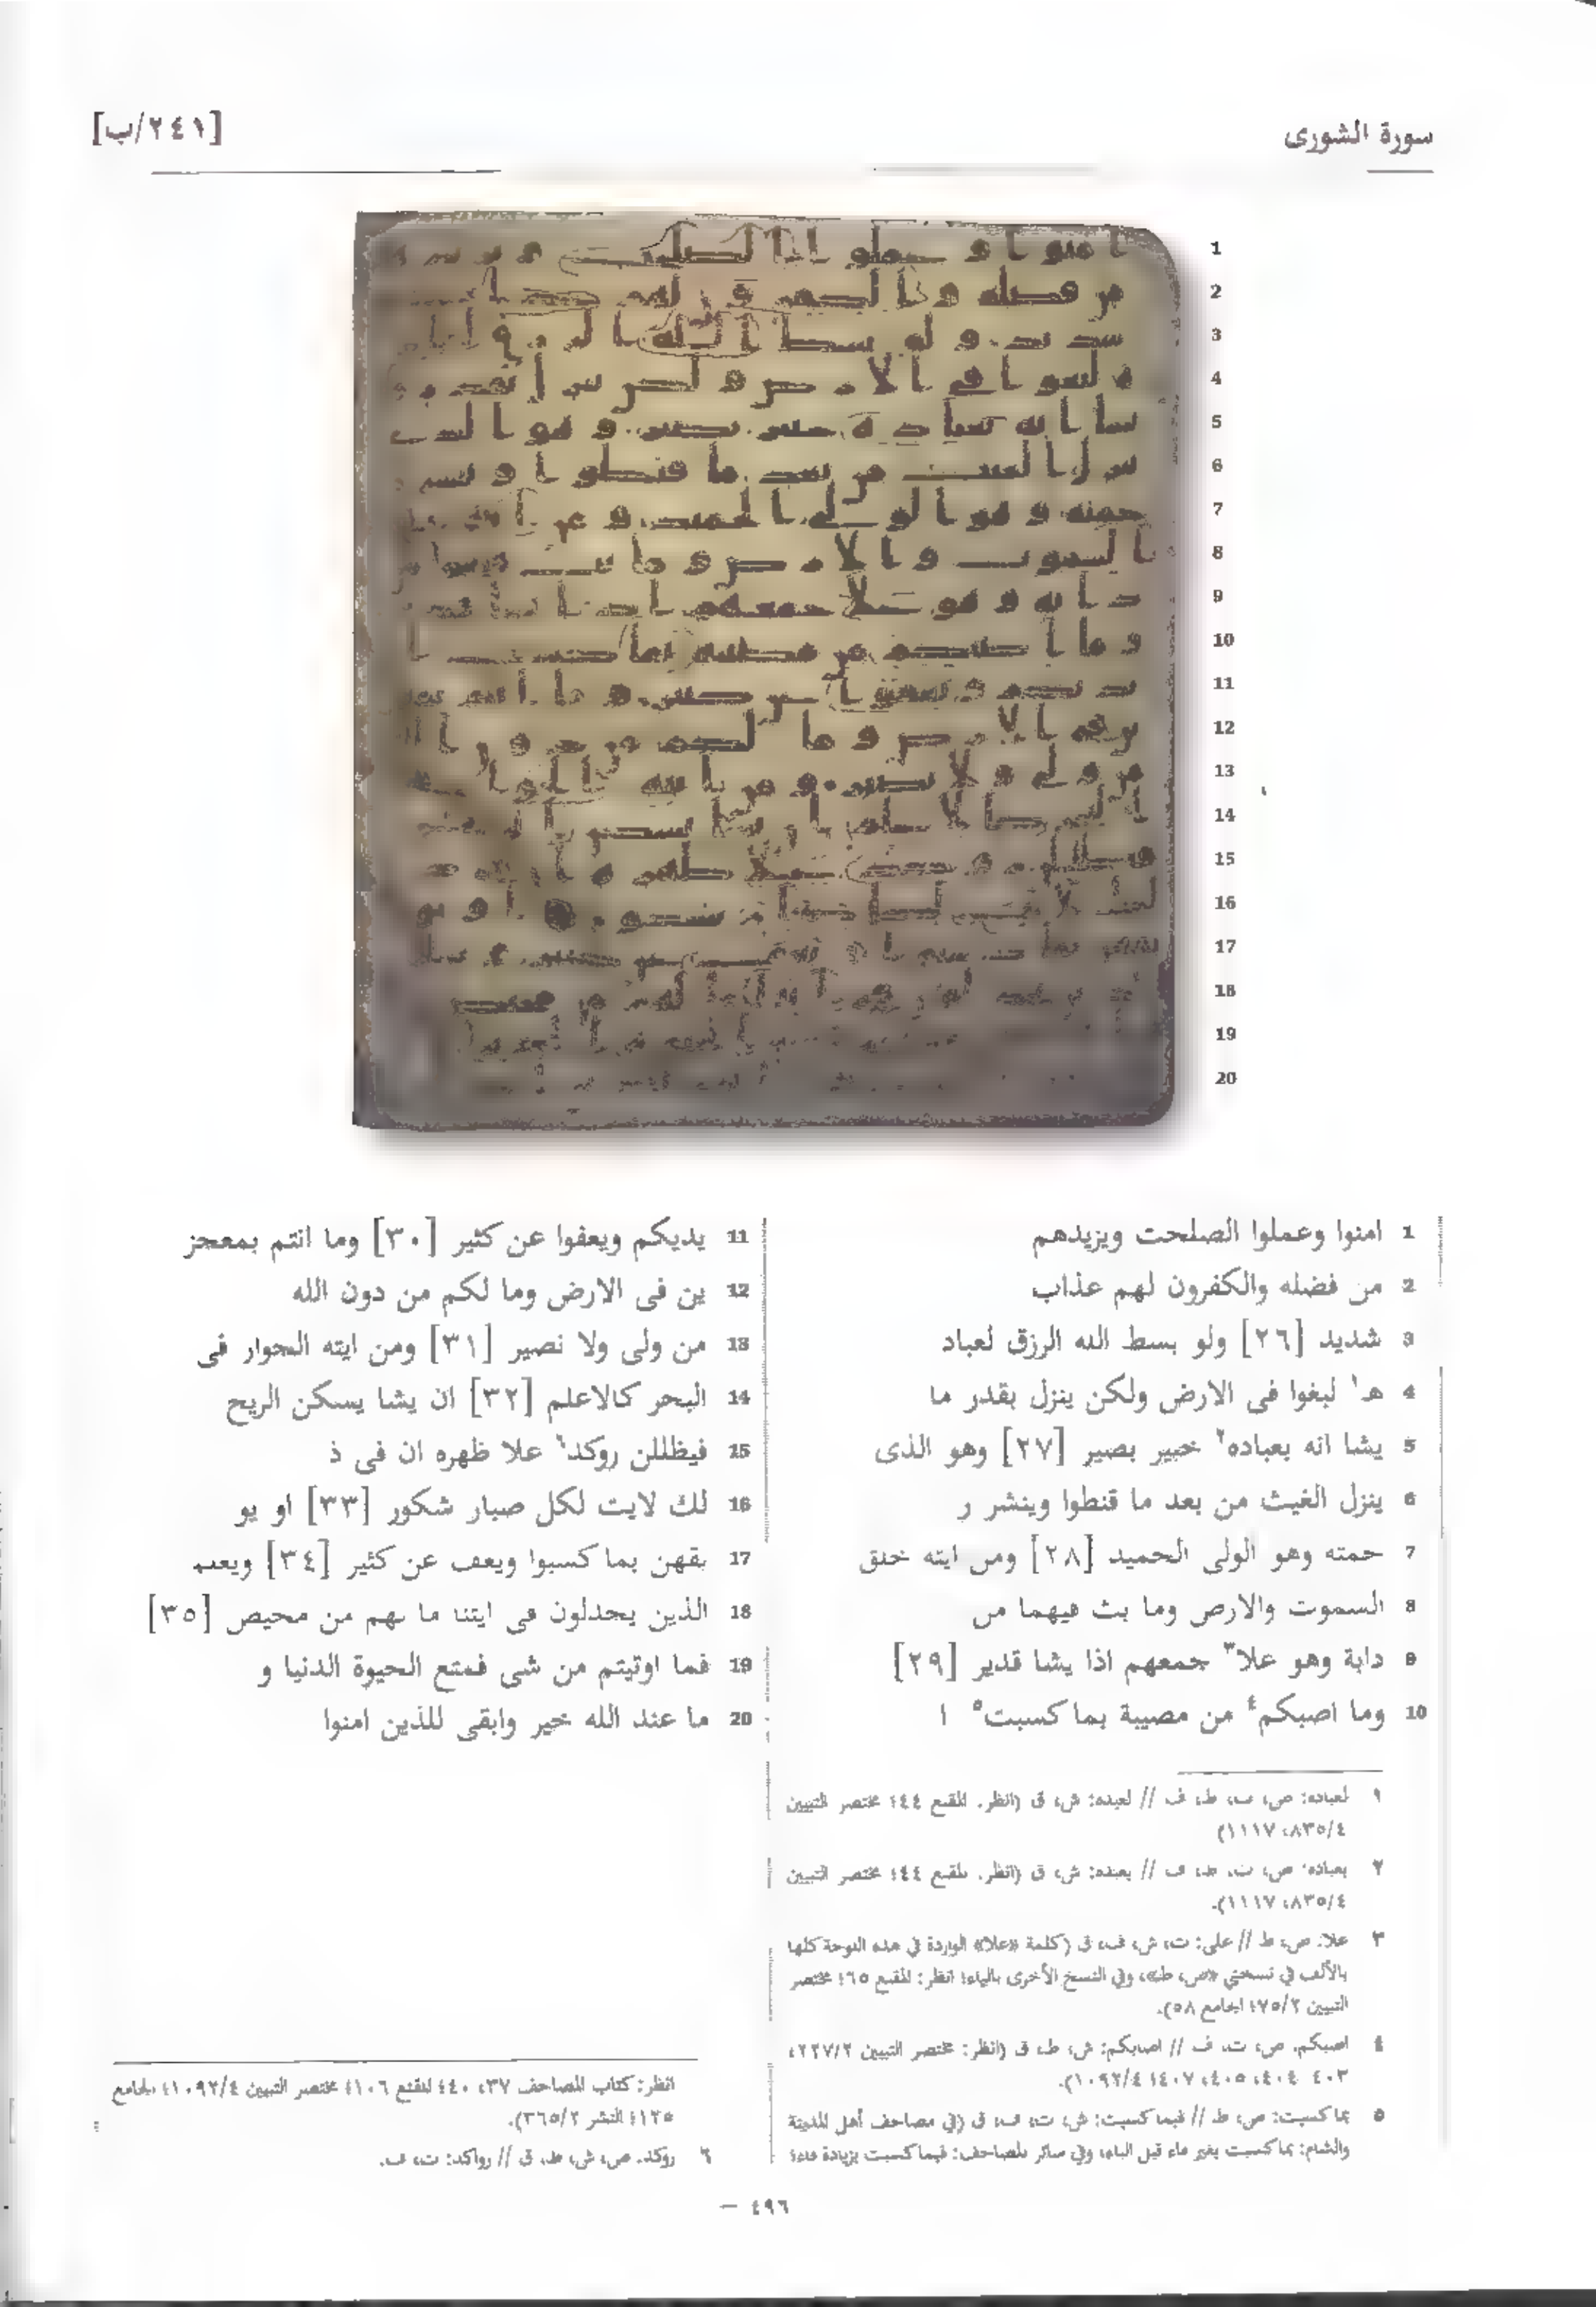 سورة الشورى
[٢٤١/ب]
1
2
3
4
5
6
7
8
9
10
11
12
13
14
15
16
17
18
19
20
1 امنوا وعملوا الصلحت ويزيدهم
2 من فضله والكفرون لهم عذاب
3 شديد [٢٦] ولو بسط الله الرزق لعباد
4 هـ١ لبغوا فى الارض ولكن ينزل بقدر ما
5 يشا انه بعباده٢ خبير بصير [٢٧] وهو الذى
6 ينزل الغيث من بعد ما قنطوا وينشر ر
7 حمته وهو الولى الحميد [٢٨] ومن ايته خلق
8 السموت والارض وما بث فيهما من
9 دابة وهو علا٣ جمعهم اذا يشا قدير [٢٩]
10 وما اصبكم٤ من مصيبة بما كسبت٥ ا
11 يديكم ويعفوا عن كثير [٣٠] وما انتم بمعجز
12 ين فى الارض وما لكم من دون الله
13 من ولى ولا نصير [٣١] ومن ايته الجوار فى
14 البحر كالاعلم [٣٢] ان يشا يسكن الريح
15 فيظللن روكد٦ علا ظهره ان فى ذ
16 لك لايت لكل صبار شكور [٣٣] او يو
17 بقهن بما كسبوا ويعف عن كثير [٣٤] ويعلم
18 الذين يجدلون فى ايتنا ما لهم من محيص [٣٥]
19 فما اوتيتم من شى فمتع الحيوة الدنيا و
20 ما عند الله خير وابقى للذين امنوا
١ لعباده: ص، ت، ط، ف // لعبده: ش، ق (انظر: المقنع ٤٤؛ مختصر التبيين
٨٣٥/٤، ١١١٧)
٢ بعباده: ص، ت، ط، ف // بعبده: ش، ق (انظر: المقنع ٤٤؛ مختصر التبيين
٨٣٥/٤، ١١١٧).
٣ علا: ص، ط // على: ت، ش، ف، ق (كلمة «علا» الواردة في هذه اللوحة كلها
بالألف في نسختي «ص، ط»، وفي النسخ الأخرى بالياء؛ انظر: المقنع ٦٥؛ مختصر
التبيين ٧٥/٢؛ الجامع ٥٨).
٤ اصبكم: ص، ت، ف // اصابكم: ش، ط، ق (انظر: مختصر التبيين ٢٢٧/٢،
٤٠٣، ٤٠٤، ٤٠٥، ٤٠٧؛ ١٠٩٢/٤).
٥ بما كسبت: ص، ط // فبما كسبت: ش، ت، ف، ق (في مصاحف أهل المدينة
والشام: بما كسبت بغير فاء قبل الباء، وفي سائر المصاحف: فبما كسبت بزيادة فاء؛
انظر: كتاب المصاحف ٣٧، ٤٠؛ المقنع ١٠٦؛ مختصر التبيين ١٠٩٢/٤؛ الجامع
١٢٥؛ النشر ٣٦٥/٢).
٦ روكد: ص، ش، ط، ق // رواكد: ت، ف.
٤٩٦ –